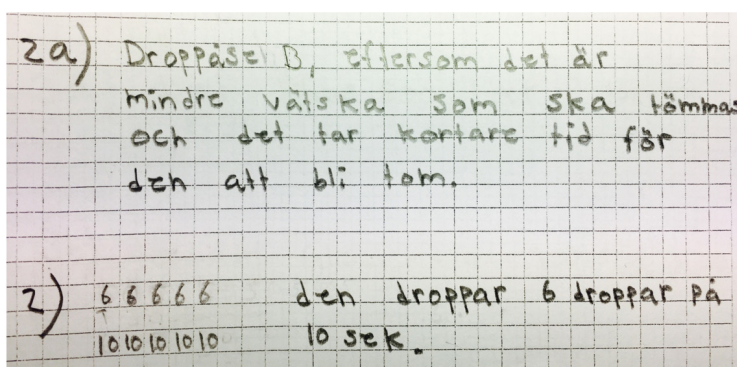 2a) Droppåse B, eftersom det är
mindre vätska som ska tömmas
och det tar kortare tid för
den att bli tom.
2) 6 6 6 6 6 den droppar 6 droppar på
10 10 10 10 10 10 sek.